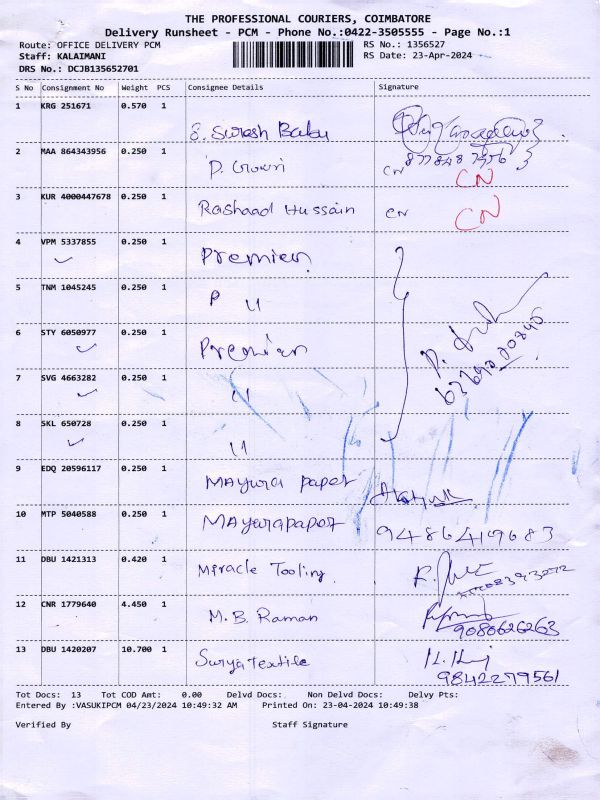 THE PROFESSIONAL COURIERS, COIMBATORE
Delivery Runsheet - PCM - Phone No.:0422-3505555 - Page No.:1
Route: OFFICE DELIVERY PCM RS No.: 1356527
Staff: KALAIMANI RS Date: 23-Apr-2024
DRS No.: DCJB135652701
S No Consignment No Weight PCS Consignee Details Signature
1 KRG 251671 0.570 1
S. Suresh Babu
2 MAA 864343956 0.250 1 D. Gowri CN CN
3 KUR 4000447678 0.250 1 Rashaad Hussain CN CN
4 VPM 5337855 0.250 1 Premier
5 TNM 1045245 0.250 1 P 11
6 STY 6050977 0.250 1 Premier
7 SVG 4663282 0.250 1 11
8 SKL 650728 0.250 1 11
9 EDQ 20596117 0.250 1 Mayura paper
10 MTP 5040588 0.250 1 Mayurapaper 9486419683
11 DBU 1421313 0.420 1 Miracle Tooling
12 CNR 1779640 4.450 1 M.B. Raman 9080626263
13 DBU 1420207 10.700 1 Surya Textile 9842279561
Tot Docs: 13 Tot COD Amt: 0.00 Delvd Docs: Non Delvd Docs: Delvy Pts:
Entered By :VASUKIPCM 04/23/2024 10:49:32 AM Printed On: 23-04-2024 10:49:38
Verified By Staff Signature